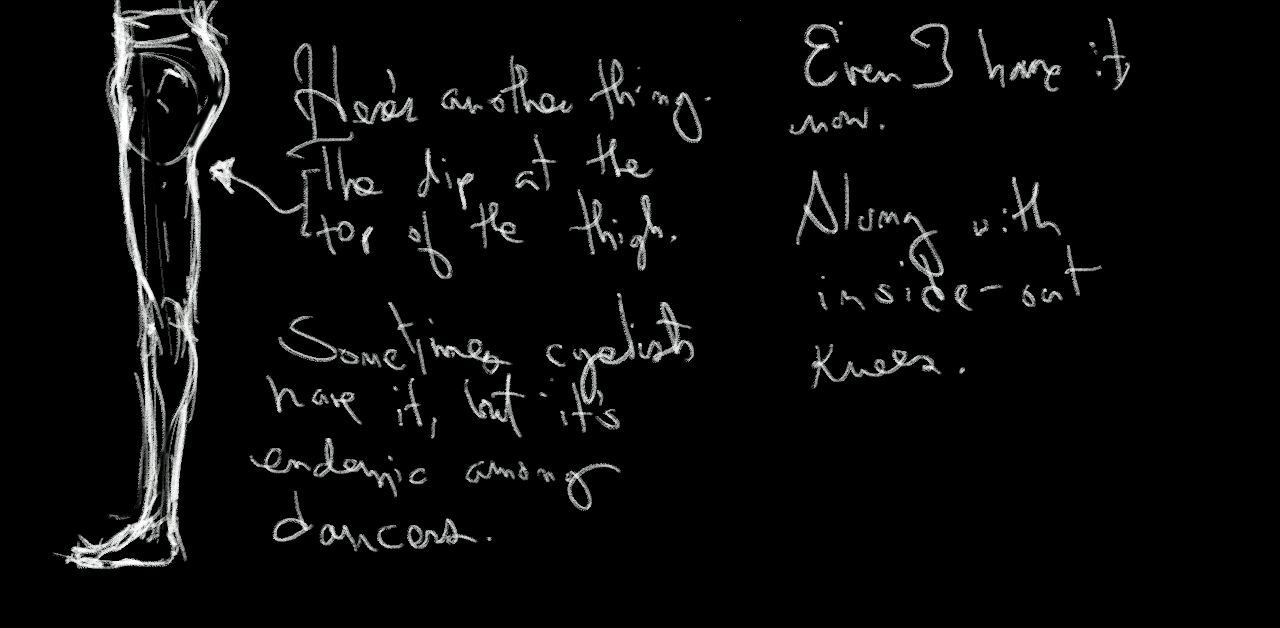 Here's another thing.
The dip at the
top of the thigh.
Sometimes cyclists
have it, but it's
endemic among
dancers.
Even I have it
now.
Along with
inside-out
knees.